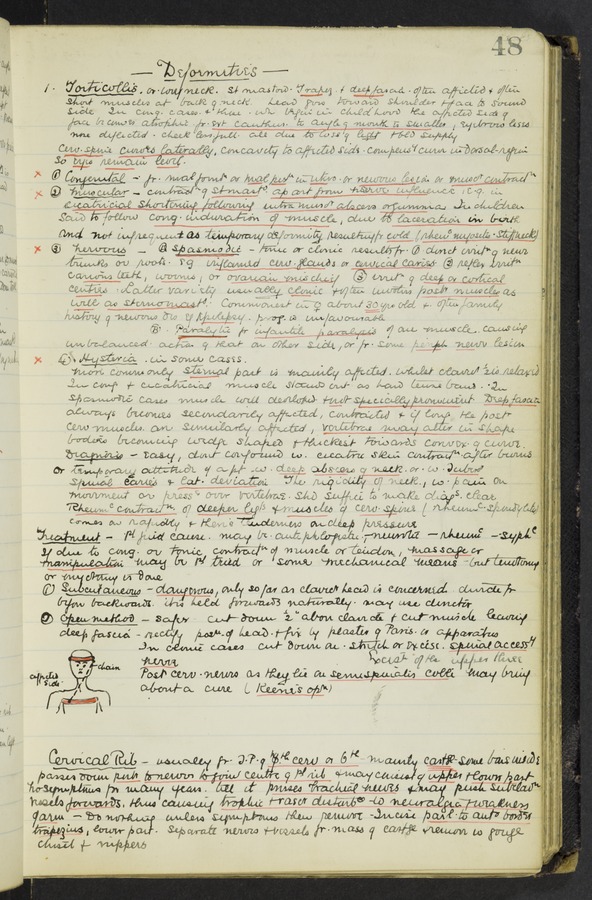 48
— Deformities —
1. Torticollis. or wry neck. St mastoid. Trapez. & deep fascia. often affected & often
short muscles at back of neck. head goes toward shoulder & face to sound
side. In cong. cases & those wh begin in childhood the affected side of
face becomes atrophic fr. ext canthus to angle of mouth is smaller, eyebrows less
more deflected. cheek less full. all due to less of light & bld supply
Cerv. spine curves laterally, concavity to affected side. compens^y curve in dorsal region
so eyes remain level.
x ① Congenital – fr. malform^n or mal pos^n in utero. or nervous lesion or musc^r contract^n
x ② Muscular – contract^n of St mast^d apart from nerve influence, e.g. in
cicatricial shortening following intra musc^r abscess or gumma. In children
said to follow cong. induration of muscle, due to laceration in birth
and not infrequent as temporary deformity resulting fr cold (rheu^c myositis. Stiff neck)
x ③ Nervous – Ⓐ Spasmodic – tonic or clonic results fr. ① direct irrit^n of nerv
trunks or roots. eg inflamed cerv. glands or cervical caries ② reflex irrit^n
carious teeth, worms, or ovarian mischief ③ irrit^n of deep or cortical
centres. Latter variety usually clonic & often involves post^r muscles as
well as sternomast^d. Commonest in ♀ about 30 yrs old & often family
history of nervous dis. eg Epilepsy. prog. is unfavourable
B. Paralytic fr infantile paralysis of one muscle. causing
unbalanced action of that on other side, or fr. some periph nerve lesion
x ④ Hysteria. in some cases.
More commonly sternal part is mainly affected. whilst clavic^r is relaxed
In cong & cicatricial muscle stands out as hard tense band. In
spasmodic cases muscle well developed & not specially prominent Deep fascia
always becomes secondarily affected, contracted & if long the post
cerv muscles are similarly affected, vertebrae may alter in shape
bodies becoming wedge shaped & thickest towards convex of curve.
Diagnosis – easy, dont confound w. cicatric skin contract^n after burns
or temporary attitude of a pt w. deep abscess of neck. or. w. Tuberc
spinal caries & lat. deviation The rigidity of neck, w. pain on
movement or press^e over vertebrae. shd suffice to make diag^s. clear
Rheum^c contract^n of deeper lig^ts & muscles of cerv. spine (rheum^c Spondylitis)
comes on rapidly & there is tenderness on deep pressure
Treatment – 1st find cause. may be antiphlogistic – neurotic – rheum^c – syph^c
If due to cong. or tonic contract^n of muscle or tendon, massage or
manipulation may be 1st tried or some mechanical means – but tenotomy
or myotomy is done
① Subcutaneous – dangerous, only so far as clavic^r head is concerned. divide fr
before backwards. it is held forwards naturally. may use director
② Open method – safer cut down ½" above clavicle & cut muscle & cerv
deep fascia – rectify pos^n of head & fix by plaster of Paris. or apparatus
In clonic cases cut down on. stretch or excise. spinal access^y
nerve exsect^n of the upper three
Post cerv. nerves as they lie on semispinalis colli may bring
about a cure (Keene's op^n)
affected side
chain
Cervical Rib – usually fr T.P. of 7th cerv or 6th mainly cart^ge some bone inside
passes down push to nerves to join centre of 1st rib & may cause of upper & lower part
No symptoms for many years. till it presses brachial nerves & may push subclav^n
vessels forwards. thus causing trophic & vascr disturb^ce to neuralgia & weakness
of arm – Do nothing unless symptoms then remove – Incise par^l to ant^r border
trapezius, lower part. separate nerves & vessels fr. mass of cart^ge & remove w gouge
chisel & nippers